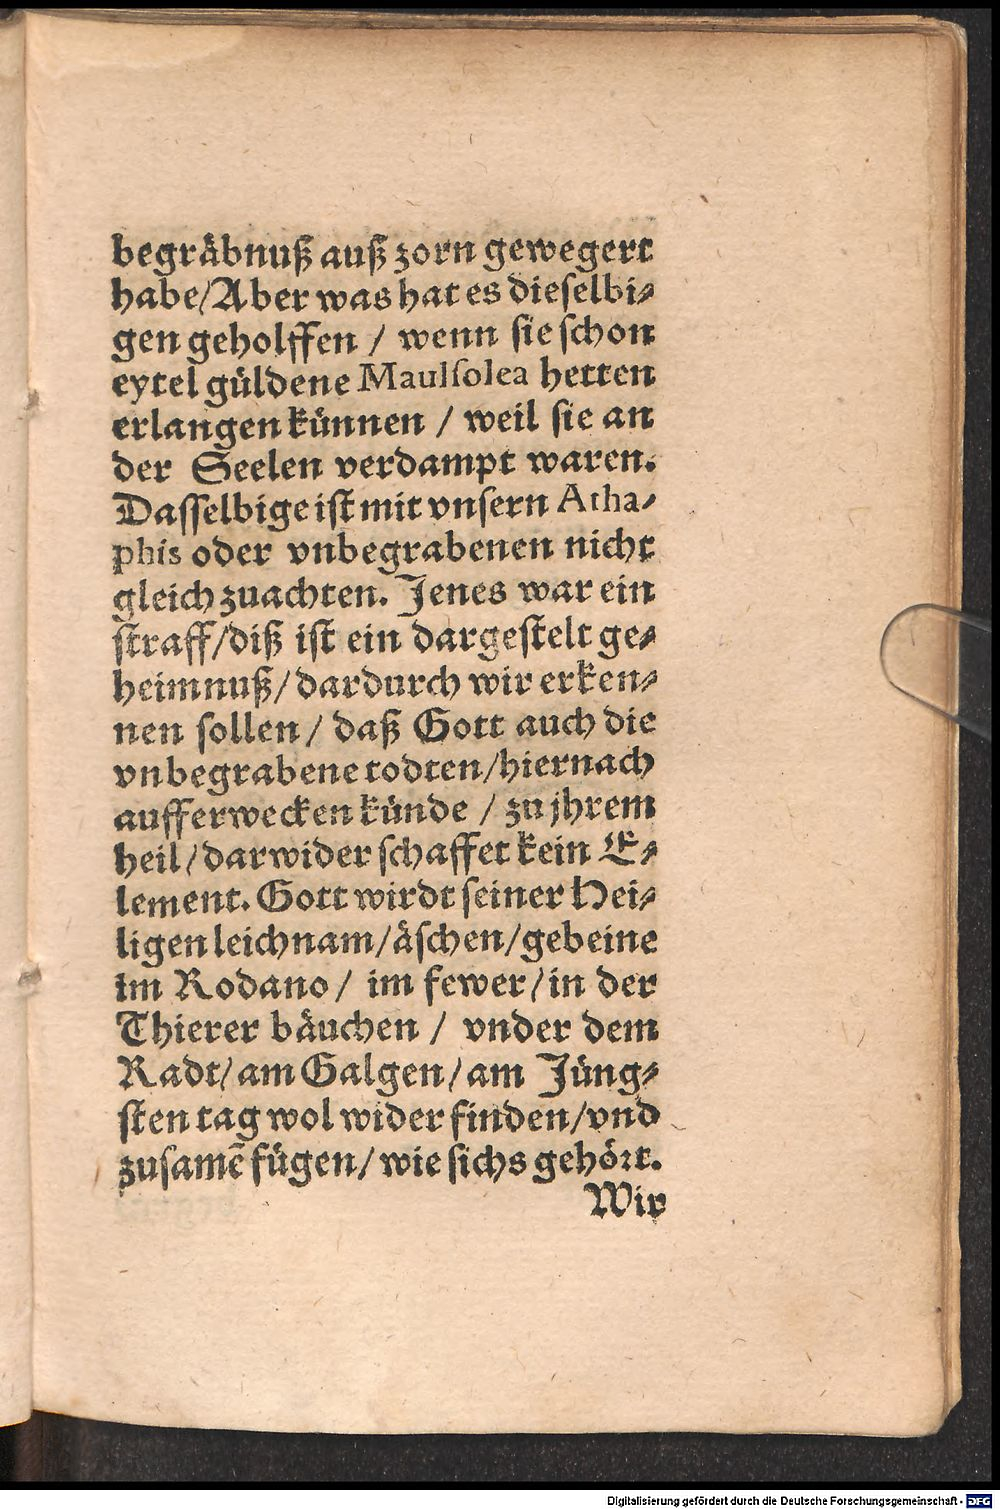 begräbnuß auß zorn gewegert
habe/Aber was hat es dieselbi⸗
gen geholffen / wenn sie schon
eytel güldene Maulsolea hetten
erlangen künnen / weil sie an
der Seelen verdampt waren.
Dasselbige ist mit vnsern Atha⸗
phis oder vnbegrabenen nicht
gleich zuachten. Jenes war ein
straff/diß ist ein dargestelt ge⸗
heimnuß/dardurch wir erken⸗
nen sollen/ daß Gott auch die
vnbegrabene todten/hiernach
aufferwecken künde / zu jhrem
heil/darwider schaffet kein E⸗
lement. Gott wirdt seiner Hei⸗
ligen leichnam/äschen/gebeine
im Rodano/ im fewer/in der
Thierer bäuchen / vnder dem
Radt/am Galgen/am Jüng⸗
sten tag wol wider finden/vnd
zusamē fügen/wie sichs gehört.
Wir
Digitalisierung gefördert durch die Deutsche Forschungsgemeinschaft - DFG